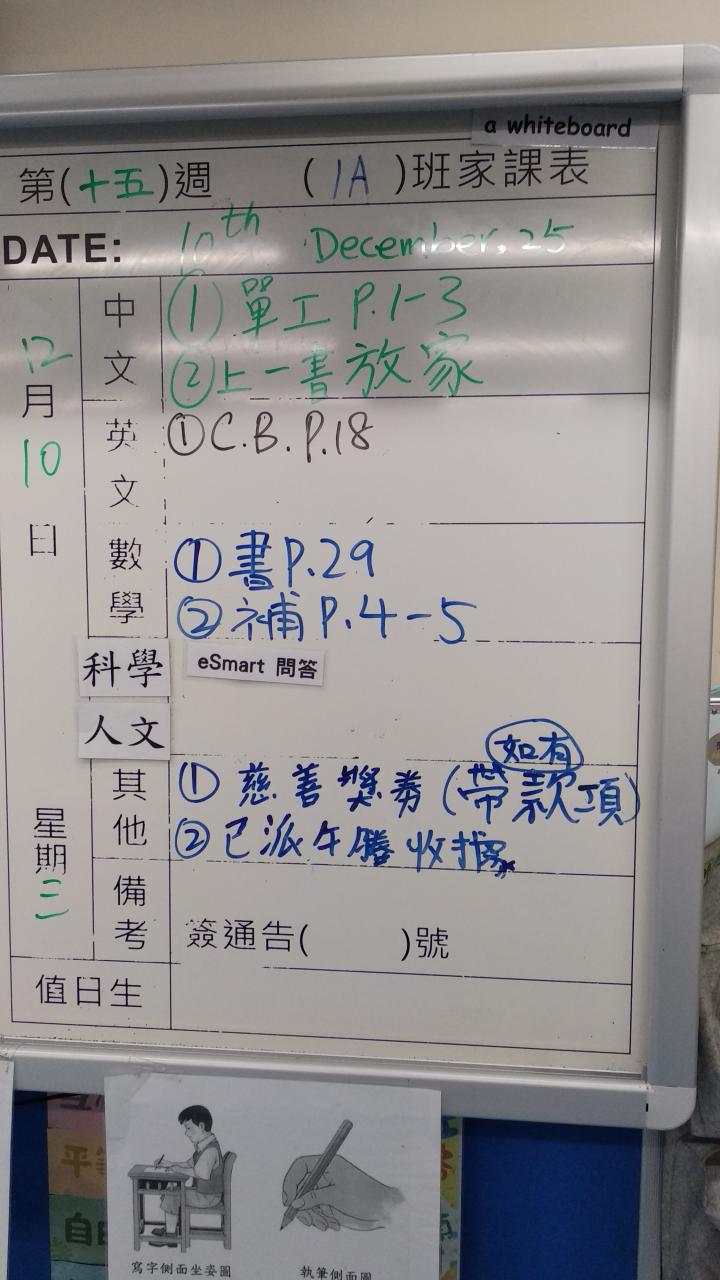 a whiteboard
第(十五)週 (1A)班家課表
DATE: 10th December, 25
12月10日
星期三
中文
①單工 P.1-3
②上一書放家
英文
①C.B. P.18
數學
①書P.29
②補P.4-5
科學
eSmart 問答
人文
其他
如有
①慈善獎券(帶款項)
②已派午膳收據
備考
簽通告( )號
值日生
平等
自由
寫字側面坐姿圖
執筆側面圖